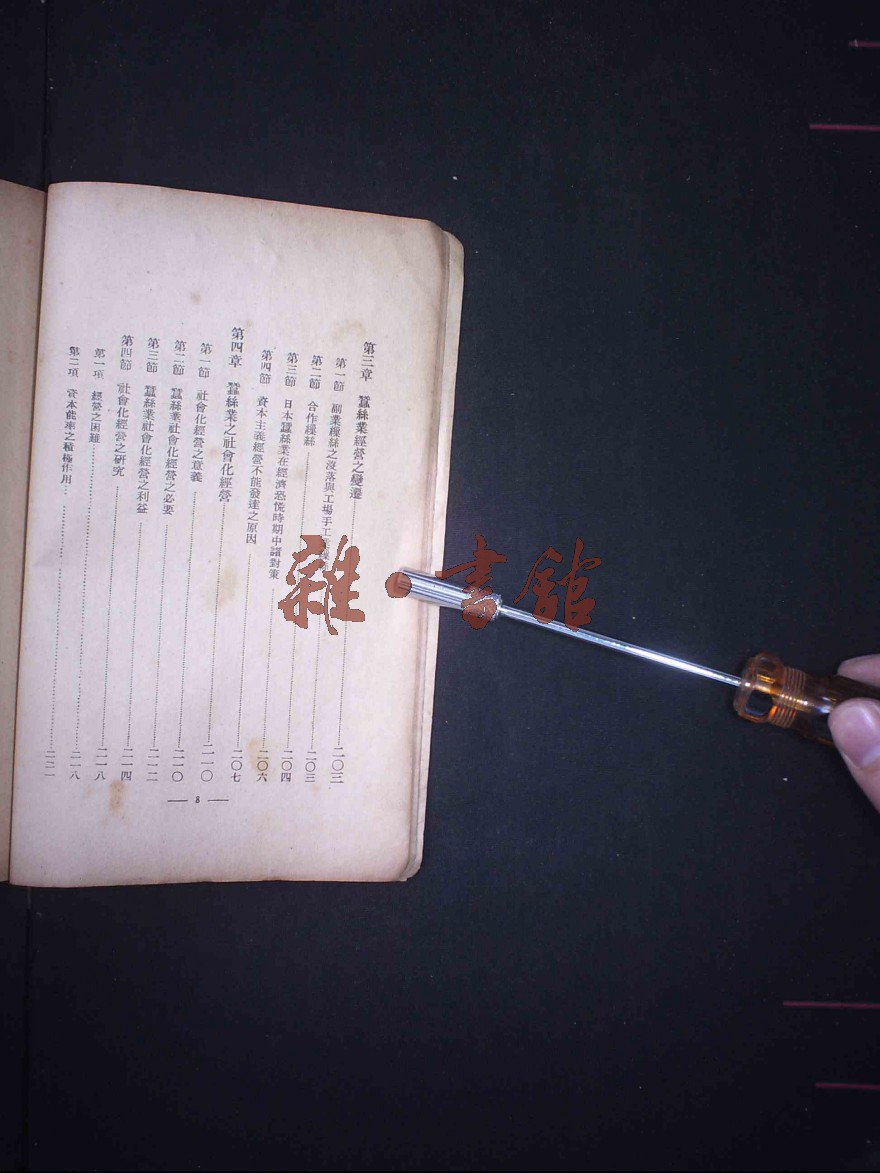 第三章 蠶絲業經營之變遷……二〇三
第一節 副業繅絲之沒落與工場手工業……二〇三
第二節 合作繅絲……二〇四
第三節 日本蠶絲業在經濟恐慌時期中諸對策……二〇六
第四節 資本主義經營不能發達之原因……二〇七
第四章 蠶絲業之社會化經營……二一〇
第一節 社會化經營之意義……二一〇
第二節 蠶絲業社會化經營之必要……二一二
第三節 蠶絲業社會化經營之利益……二一四
第四節 社會化經營之研究……二一八
第一項 經營之困難……二一八
第二項 資本能率之積極作用……二二一
— 8 —
雜·書館